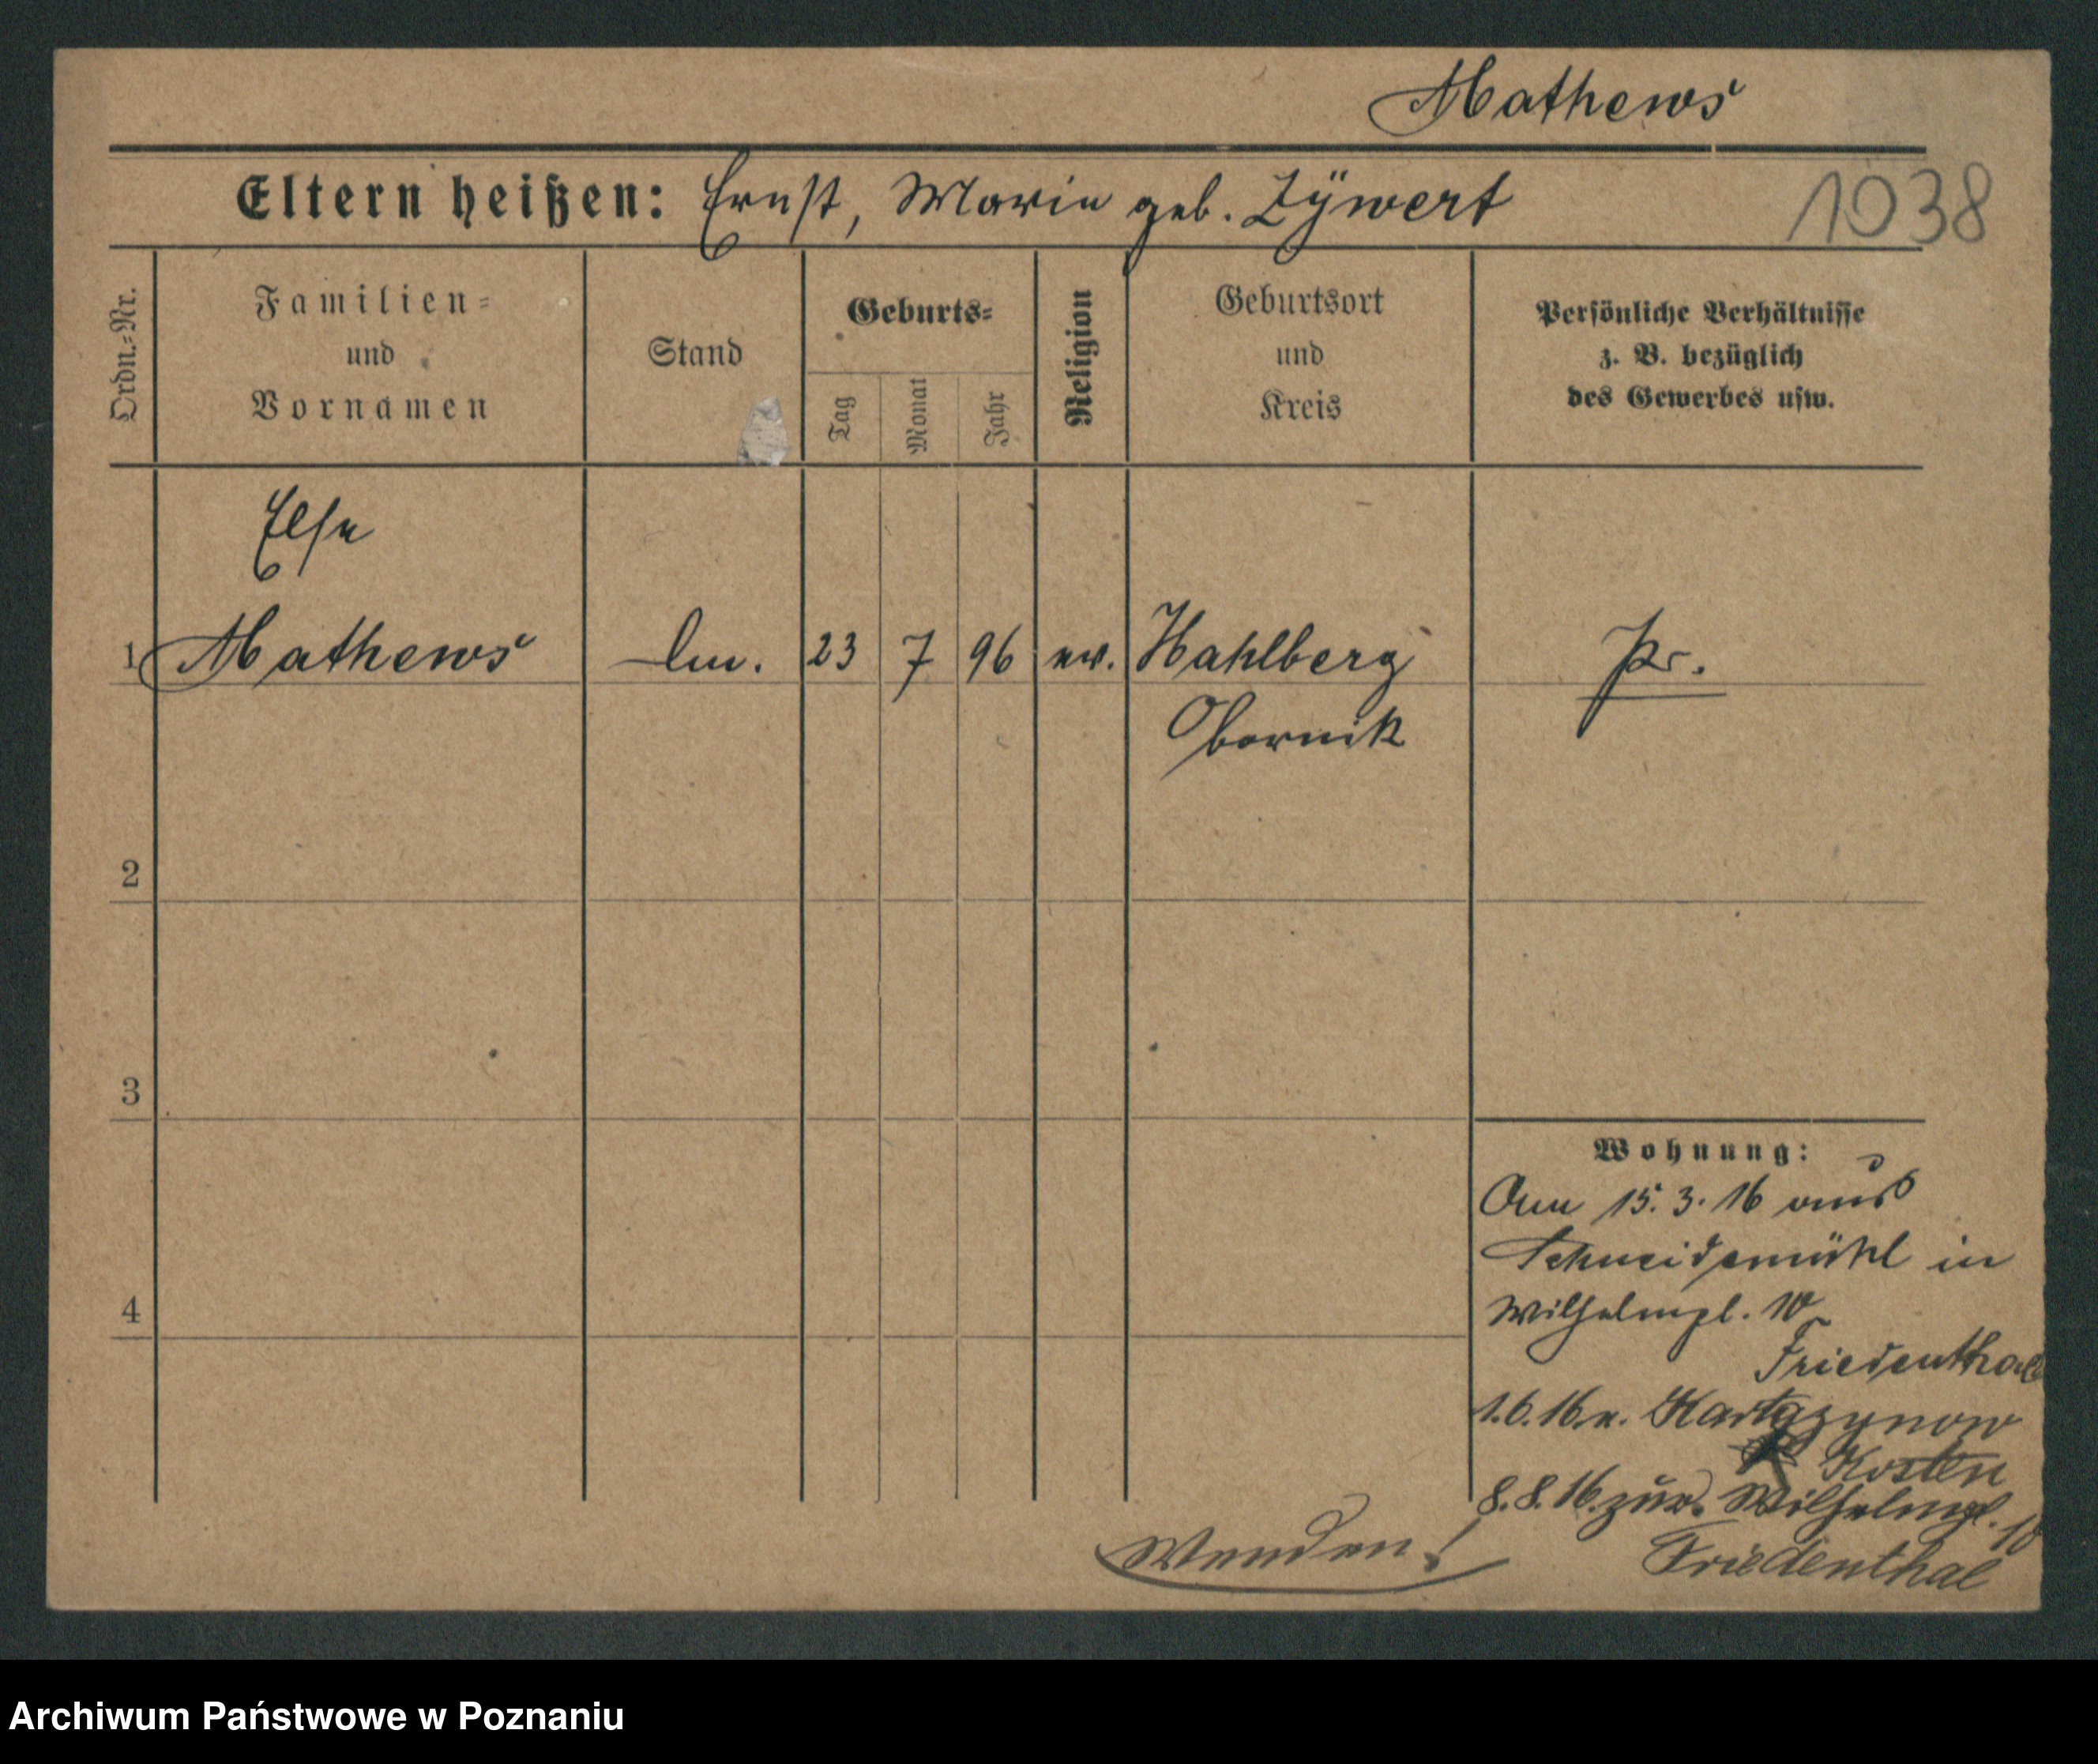 Mathews
Eltern heißen: Ernst, Marie geb. Zÿwert
1038
Ordn.-Nr.
Familien-
und
Vornamen
Stand
Geburts-
Tag
Monat
Jahr
Religion
Geburtsort
und
Kreis
Persönliche Verhältnisse
z. B. bezüglich
des Gewerbes usw.
Else
1 Mathews 23 7 96 ev. Hahlberg Pr.
Obornik
2
3
4
Wohnung:
Am 15.3.16 aus
Schneidemühl in
Wilhelmpl. 10
Friedenthal
1.6.16 n.
Kosten
8.8.16 zur. Wilhelmpl. 10
Friedenthal
Wenden!
Archiwum Państwowe w Poznaniu